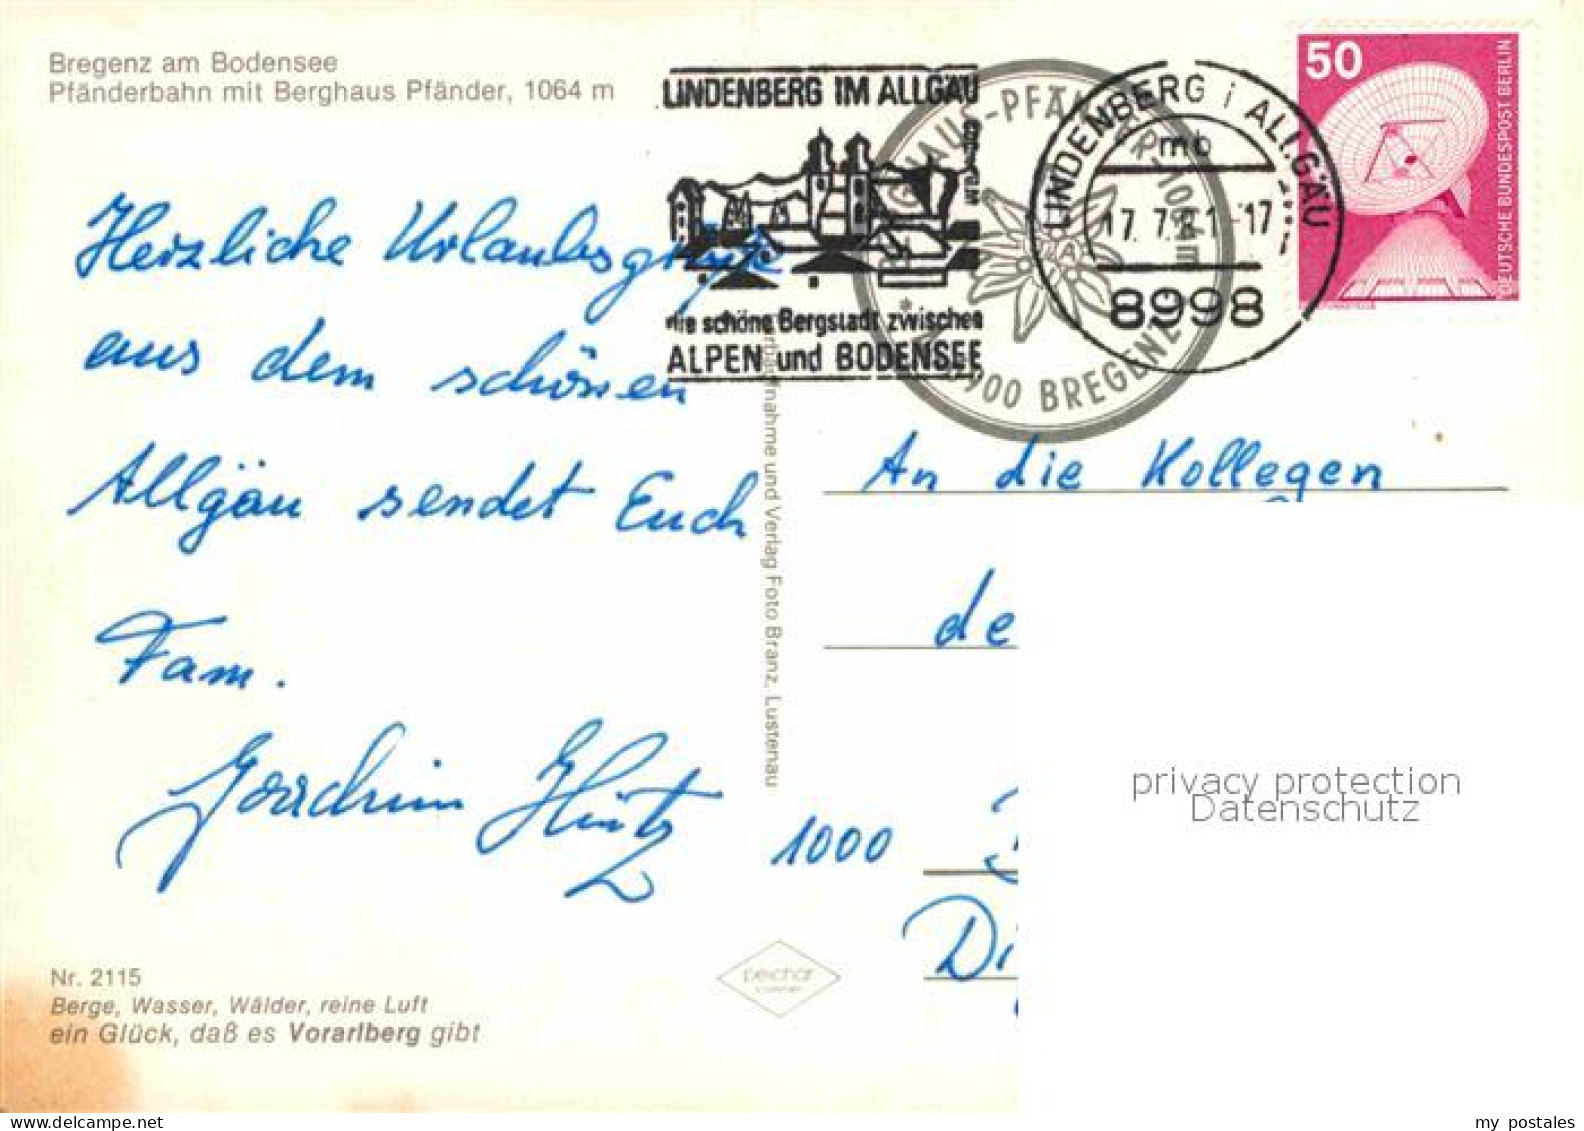 Bregenz am Bodensee
Pfänderbahn mit Berghaus Pfänder, 1064 m
LINDENBERG IM ALLGÄU
die schöne Bergstadt zwischen
ALPEN und BODENSEE
LINDENBERG i ALLGÄU
mb
17.7.81-17
8998
BREGENZ
50
DEUTSCHE BUNDESPOST BERLIN
Herzliche Urlaubsgrüße
aus dem schönen
Allgäu sendet Euch
Fam.
Joachim
An die Kollegen
de
1000
Di
nahme und Verlag Foto Branz, Lustenau
privacy protection
Datenschutz
Nr. 2115
Berge, Wasser, Wälder, reine Luft
ein Glück, daß es Vorarlberg gibt
my postales